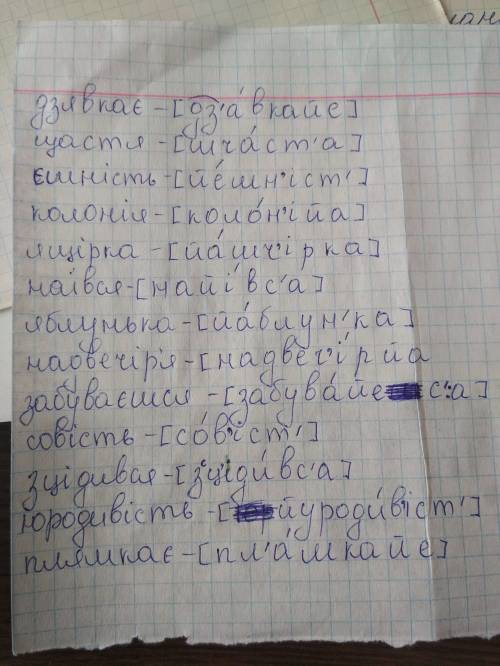 дзявкає - [дз'а́вкайе]
щастя - [шча́ст'а]
ємність - [йе́мн'іст']
колонія - [коло́н'ійа]
ящірка - [йа́шч'ірка]
наївся - [найі́вс'а]
яблунька - [йа́блун'ка]
надвечір'я - [надвеч'і́рйа
забуваєшся - [забува́йес':а]
совість - [со́в'іст']
зцідився - [з'ц'іди́вс'а]
юродивість - [йуроди́в'іст']
плямкає - [пл'а́мкайе]